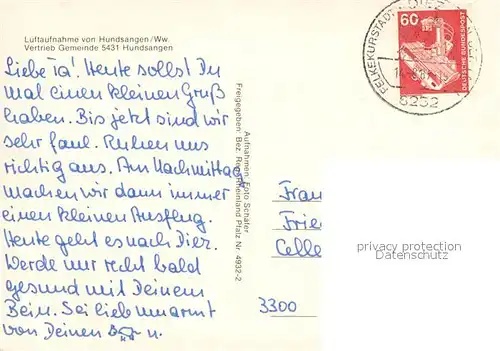 Luftaufnahme von Hundsangen/Ww.
Vertrieb Gemeinde 5431 Hundsangen
Liebe Ia! Heute sollst Du
mal einen kleinen Gruß
haben. Bis jetzt sind wir
sehr faul. Ruhen uns
richtig aus. Am Nachmittag
machen wir dann immer
einen kleinen Ausflug.
Heute geht es nach Diez.
Werde nur recht bald
gesund mit Deinem
Bein. Sei lieb umarmt
von Deinen u.
Aufnahmen: Foto Schäfer
Freigegeben: Bez. Reg. Rheinland Pfalz Nr. 4932-2
FELKEKURSTADT DIEZ
6252
60
DEUTSCHE BUNDESPOST
Frau
Frie
Celle
3300
privacy protection
Datenschutz